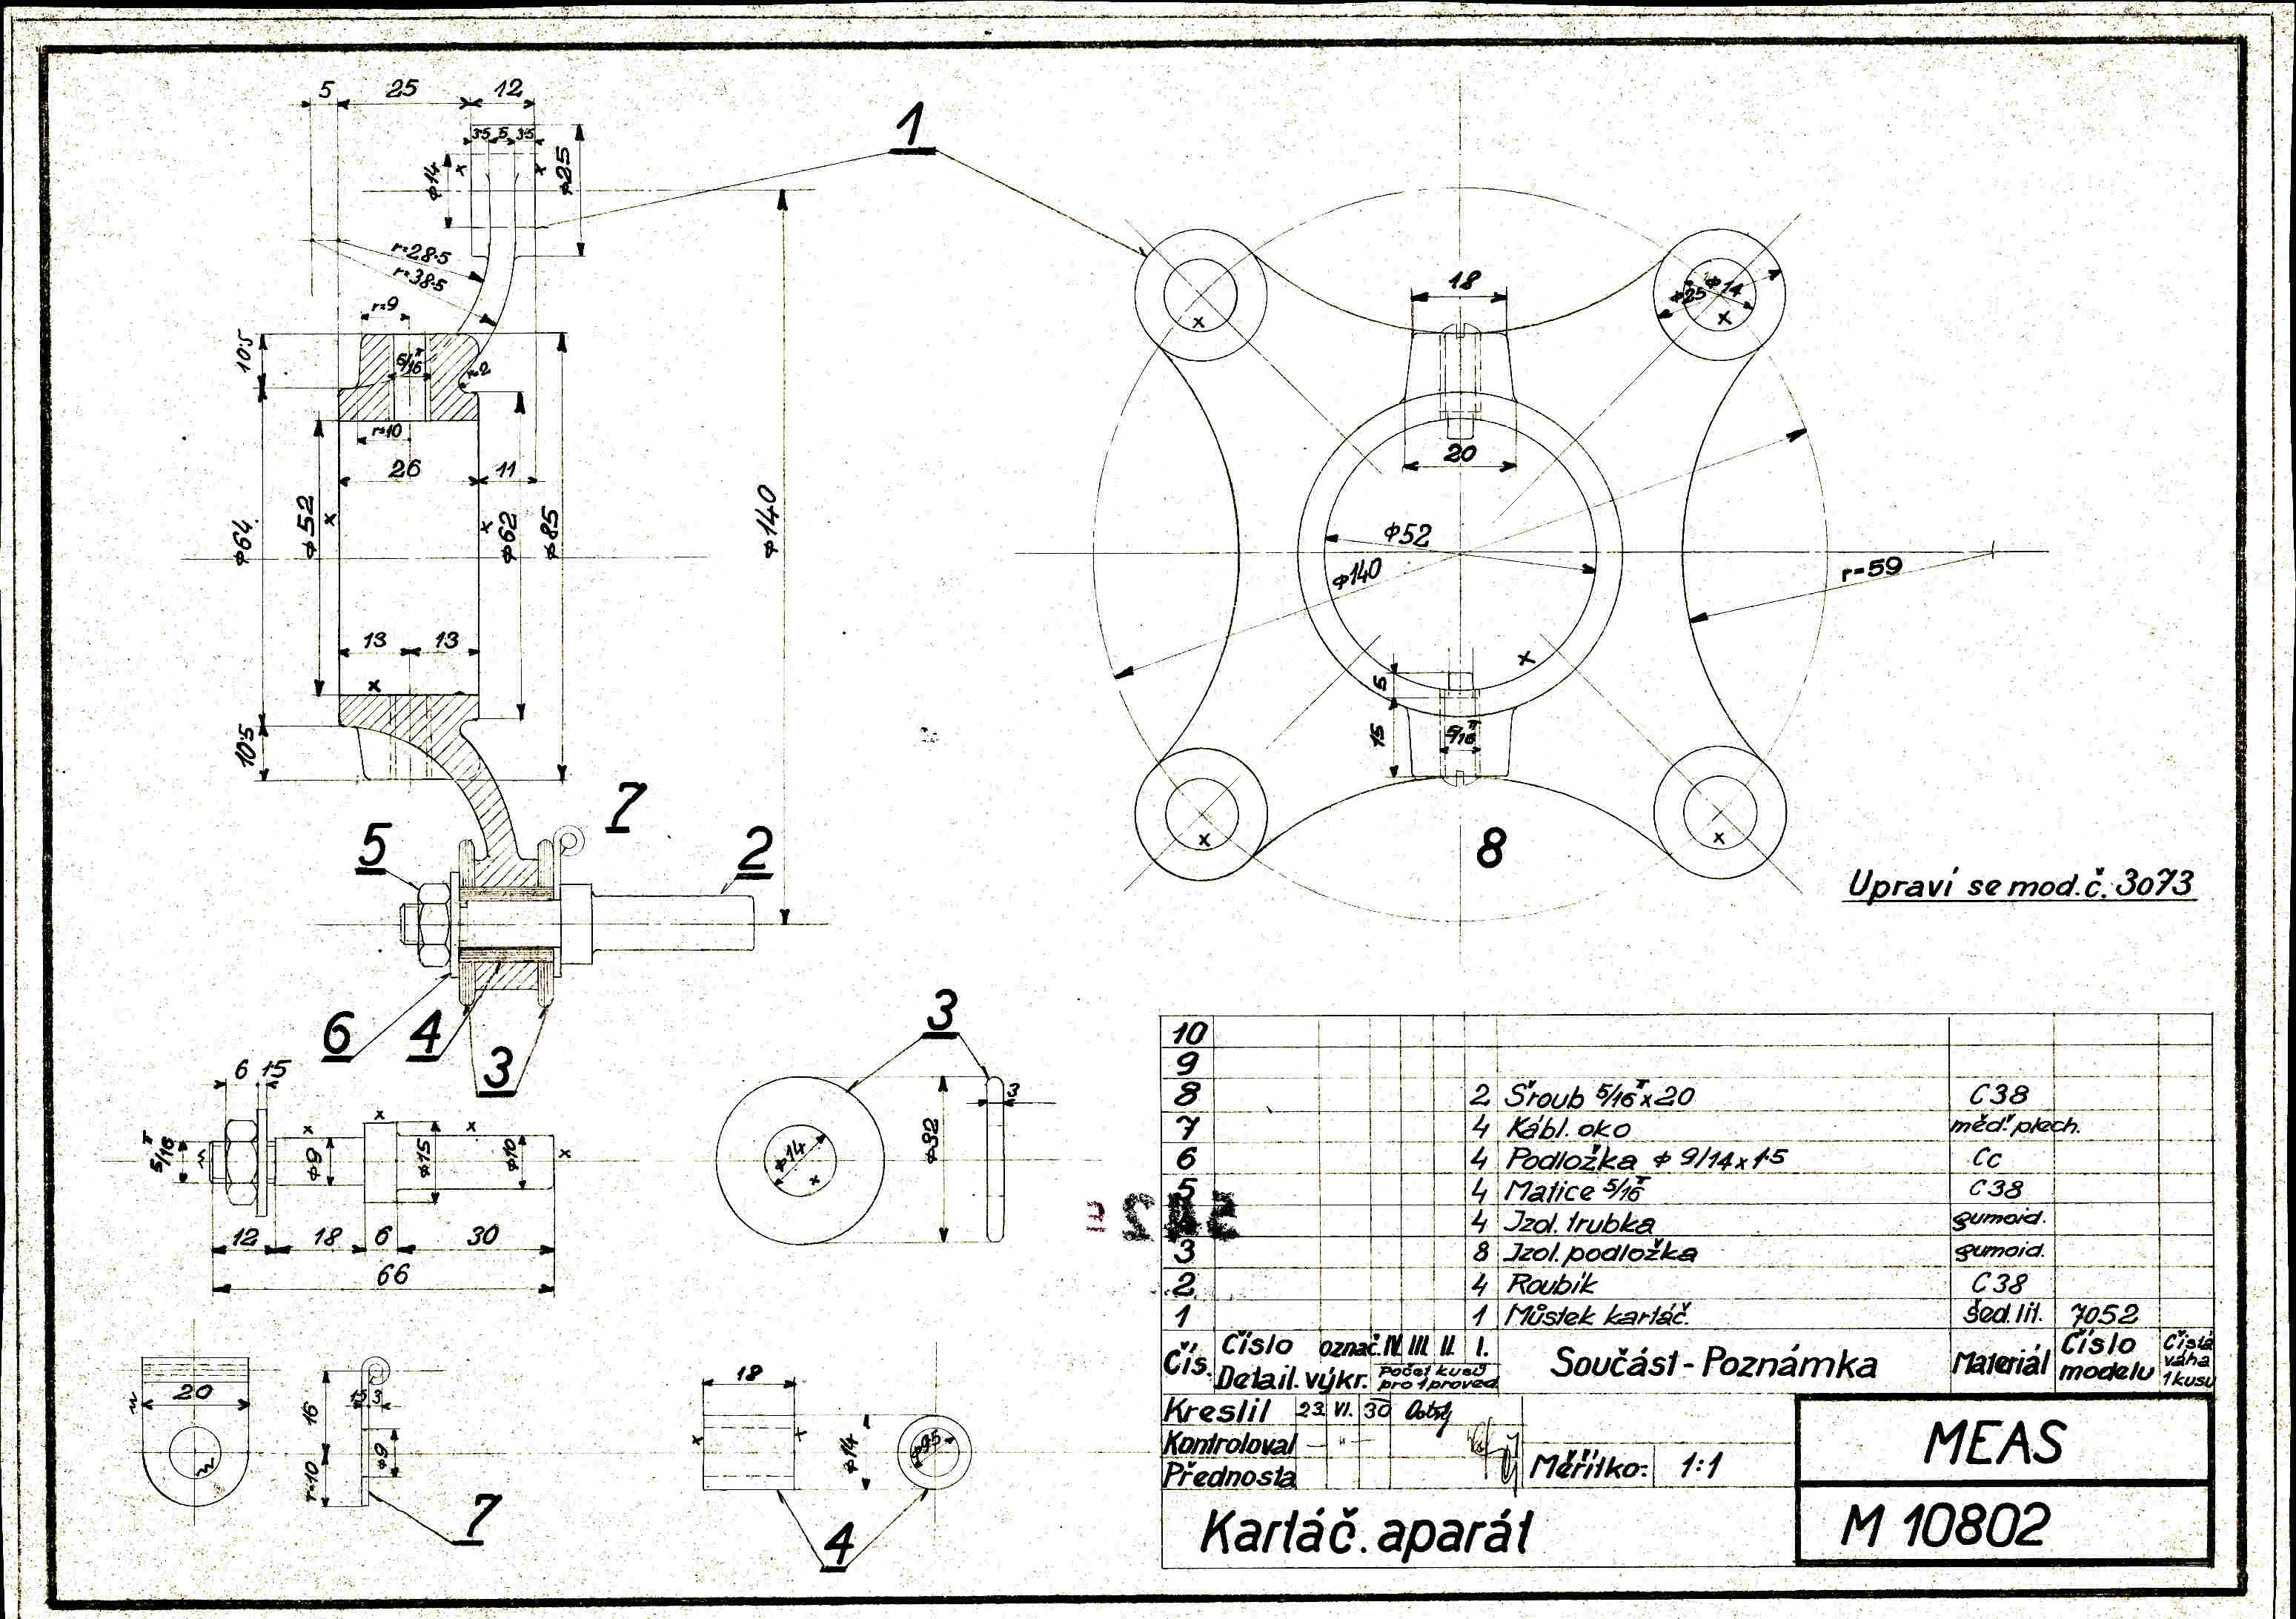 5 25 12
3·5 5 3·5
ϕ14
ϕ25
1
r=28·5
r=38·5
r=9
10·5
5/16 T
r=2
r=10
26 11
ϕ64
ϕ52
ϕ62
ϕ85
ϕ140
13 13
10·5
7
5
2
6 4 3
18
ϕ25 ϕ14
20
ϕ52
ϕ140
r=59
5
15
5/16 T
8
Upraví se mod. č. 3073
6 1·5
5/16 T
ϕ9
ϕ15
ϕ10
12 18 6 30
66
3
ϕ14
ϕ32
3
20
16
1·5 3
r=10
ϕ9
7
18
ϕ14
ϕ9·5
4
10
9
8 2 Šroub 5/16 T x 20 C 38
7 4 Kábl. oko měď. plech.
6 4 Podložka ϕ 9/14 x 1·5 Cc
5 4 Matice 5/16 T C 38
4 Izol. trubka gumoid.
3 8 Izol. podložka gumoid.
2 4 Roubík C 38
1 1 Můstek kartáč. šed. lit. 7052
Čís. Číslo označ. IV III II I. Součást - Poznámka Materiál Číslo modelu Čistá váha 1 kusu
Detail. výkr. Počet kusů pro 1 proved.
Kreslil 23. VI. 30
Kontroloval — " —
Přednosta
Měřítko: 1:1
MEAS
Kartáč. aparát
M 10802